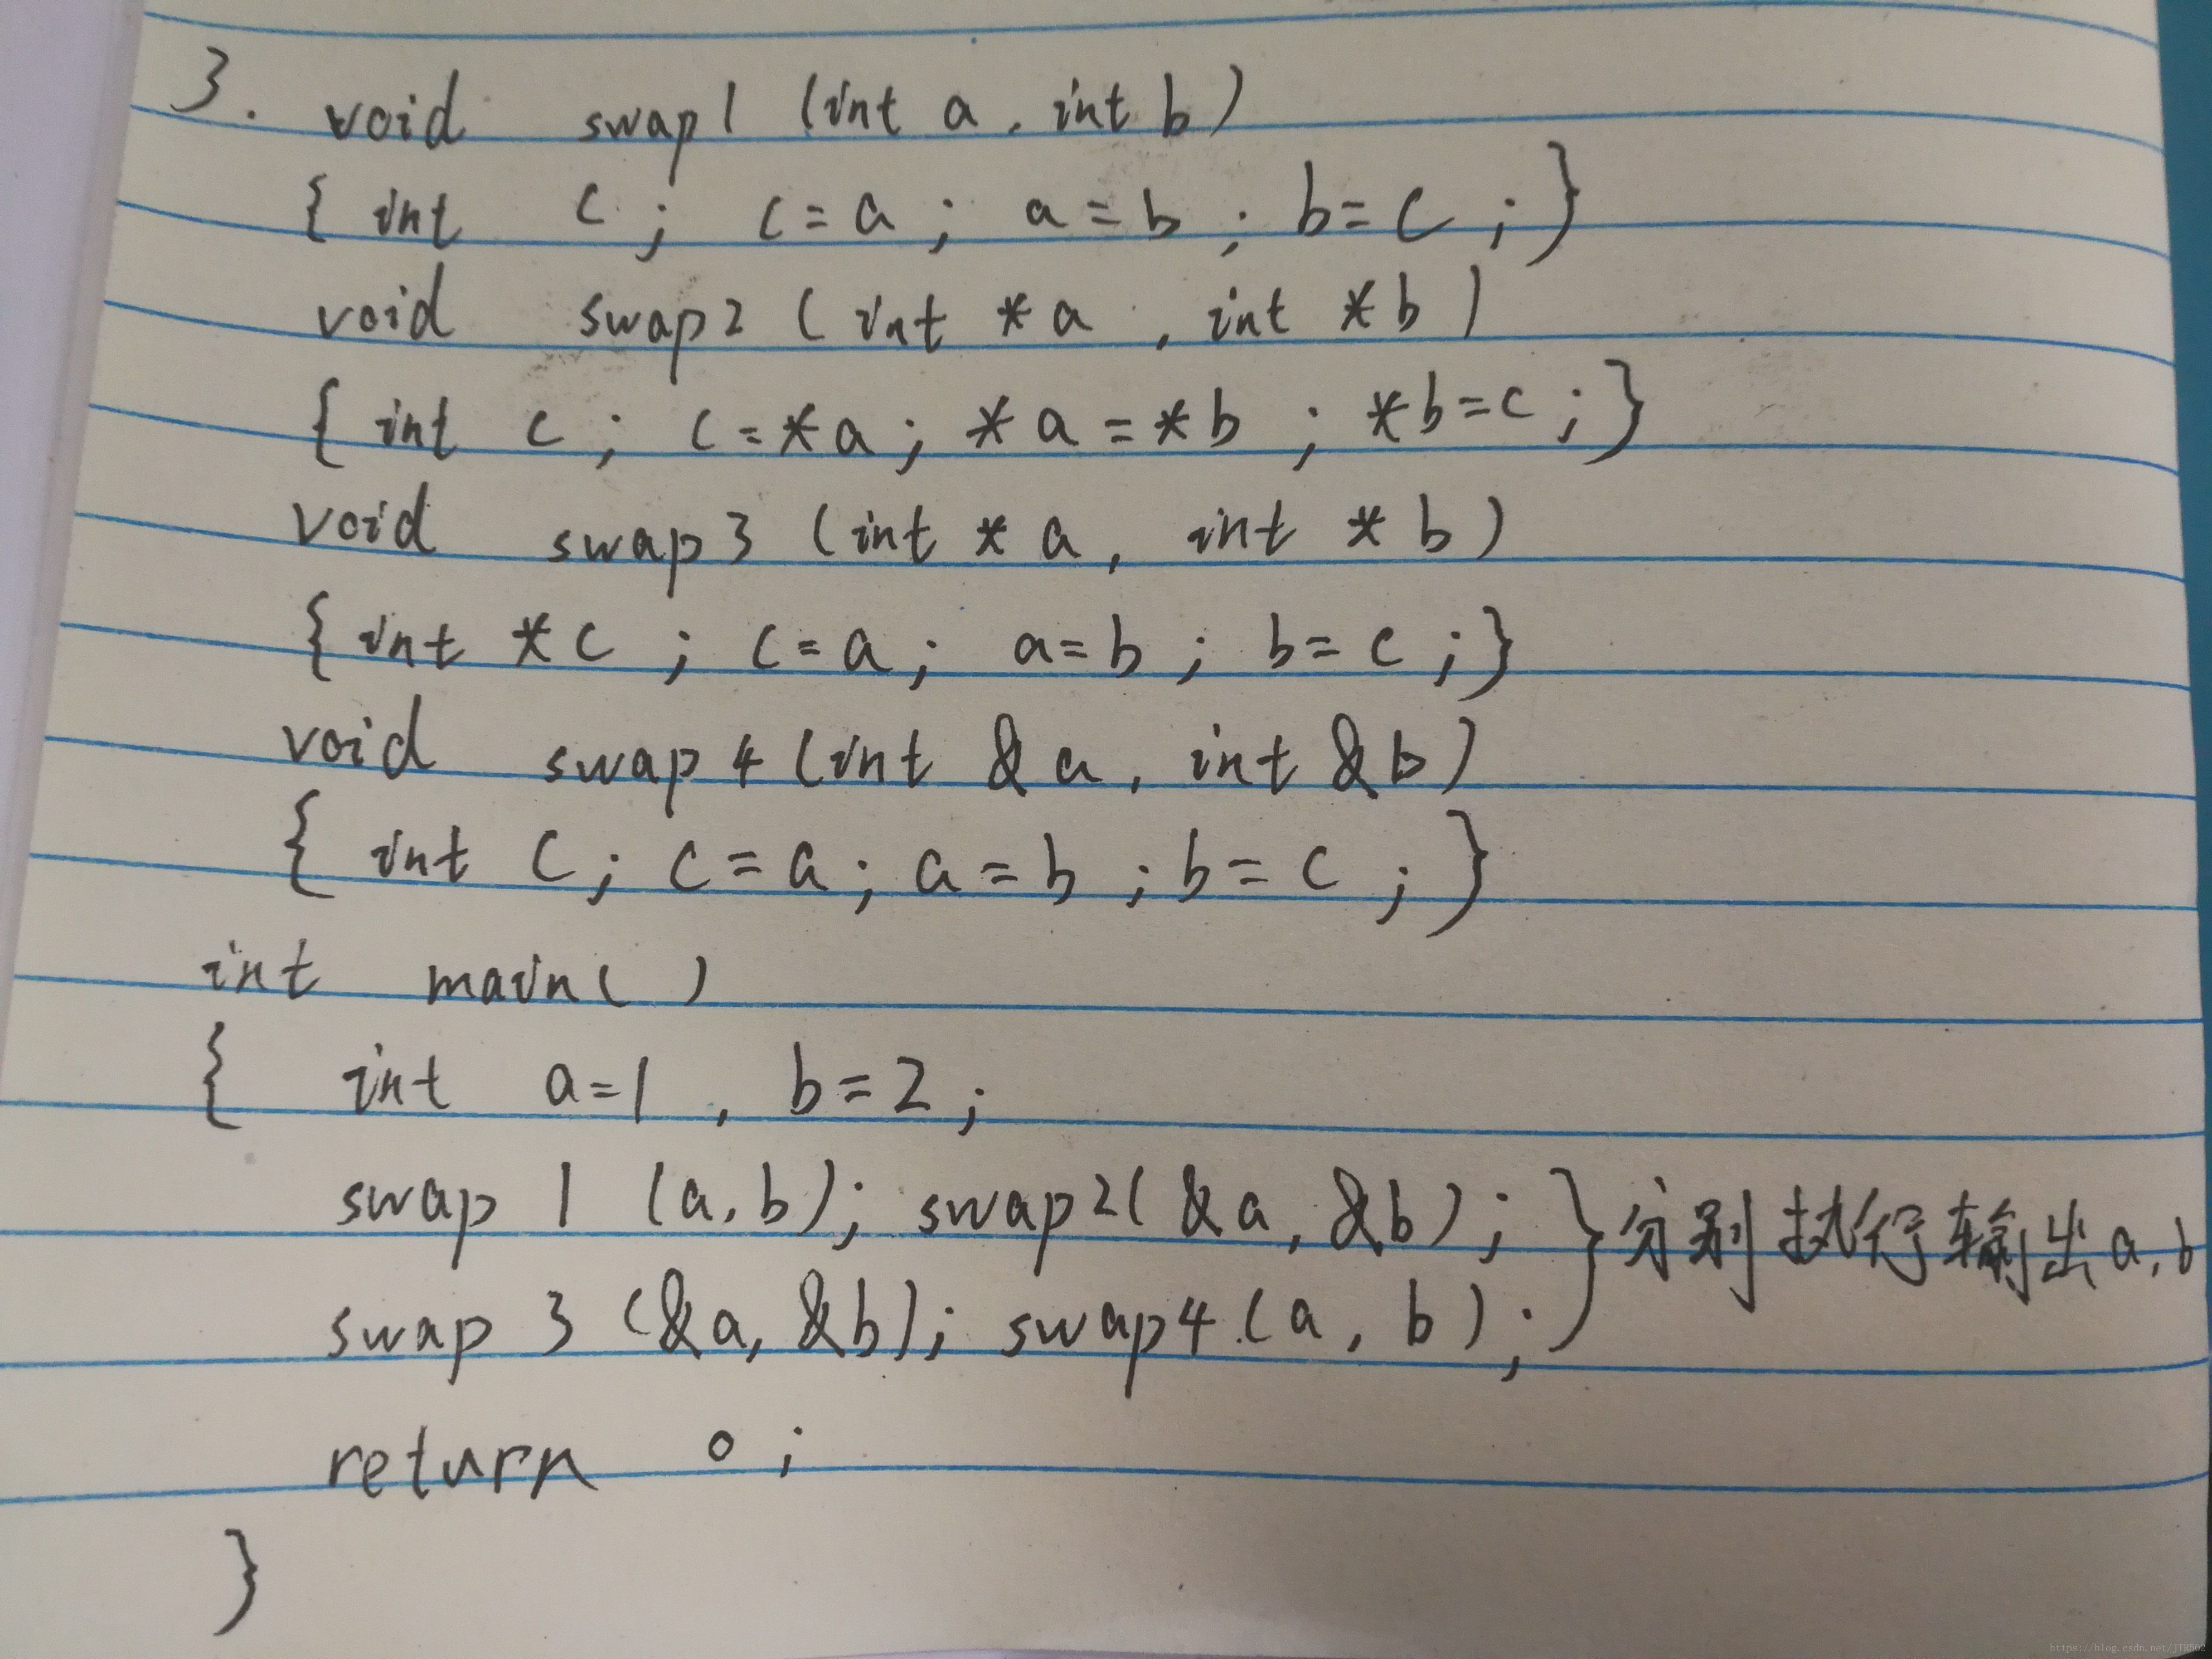 3. void swap1 (int a, int b)
{ int c; c=a; a=b; b=c;}
void swap2 (int *a, int *b)
{ int c; c=*a; *a=*b; *b=c;}
void swap3 (int *a, int *b)
{ int *c; c=a; a=b; b=c;}
void swap4 (int &a, int &b)
{ int c; c=a; a=b; b=c;}
int main()
{ int a=1, b=2;
swap1 (a,b); swap2(&a, &b); } 分别执行输出a,b
swap3 (&a, &b); swap4 (a, b);
return 0;
}
https://blog.csdn.net/JTR502